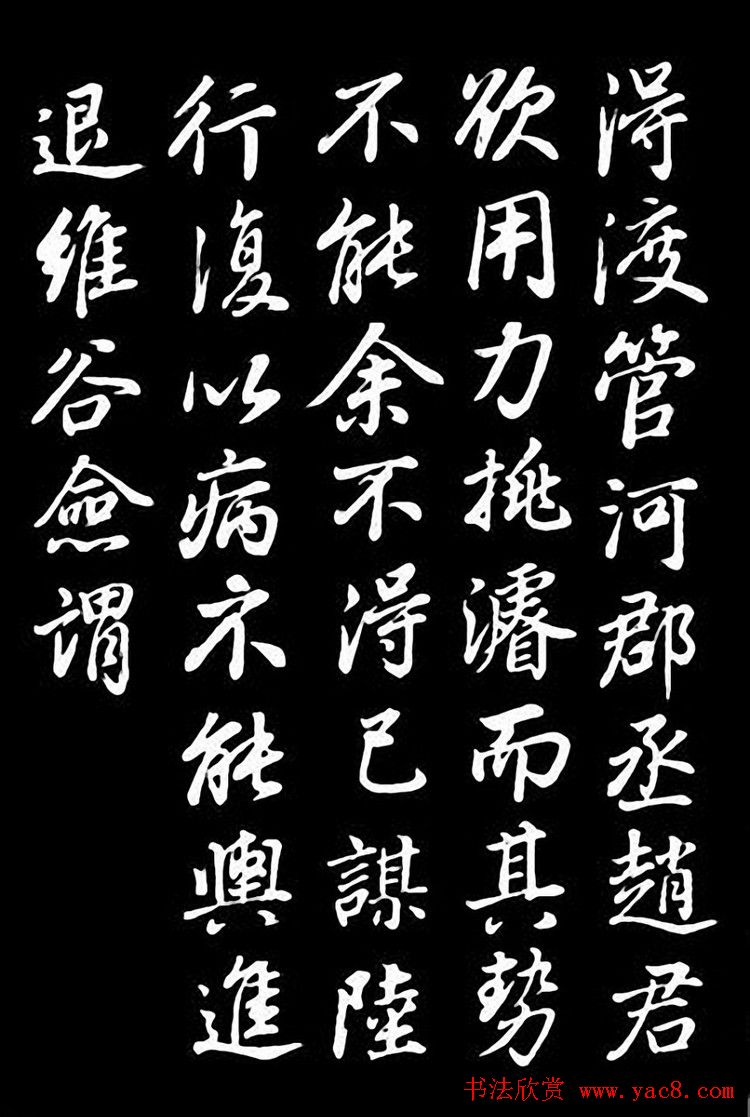 得渡管河郡丞趙君
欲用力挑濬而其勢
不能余不得已謀陸
行復以病不能輿進
退維谷僉謂
书法欣赏 www.yac8.com